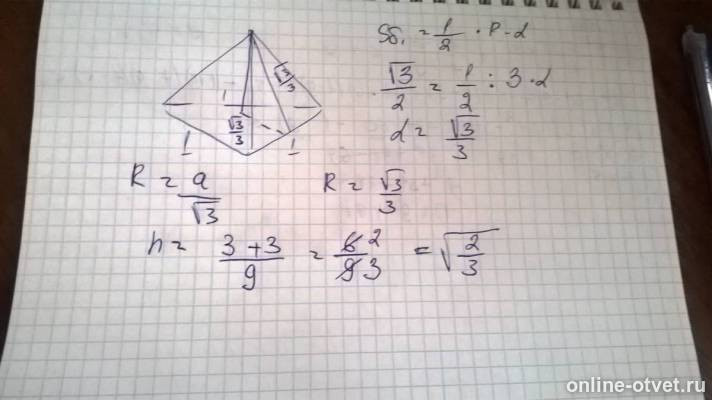 Sб. = 1/2 · P · d
√3/2 = 1/2 : 3 · d
d = √3/3
√3/3
1
√3/3
1
1
R = a/√3
R = √3/3
h = 3+3/9 = 6 2/9 3 = √2/3
online-otvet.ru